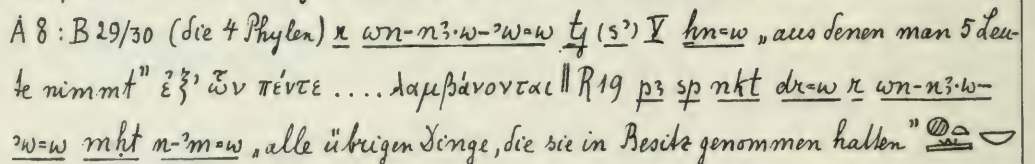 A 8 : B 29/30 (die 4 Phylen) r wn-nꜣ.w-ꜣw=w tj (sꜣ) V hn=w „aus denen man 5 Leu-
te nimmt" ἐξ' ὧν πέντε .... λαμβάνονται || R 19 pꜣ sp nkt dr=w r wn-nꜣ.w-
ꜣw=w mḥt n-ꜣm=w „alle übrigen Dinge, die sie in Besitz genommen hatten"